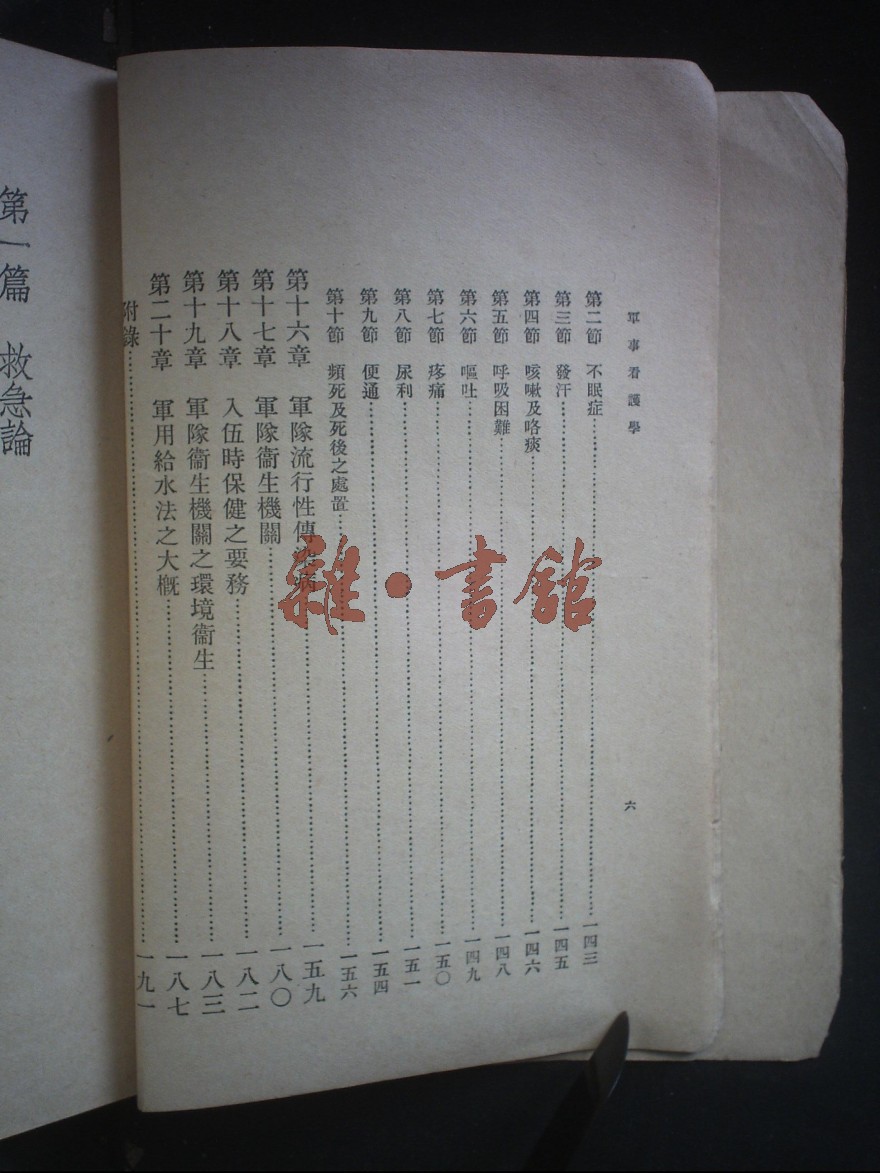 軍事看護學
六
第二節 不眠症……一四三
第三節 發汗……一四五
第四節 咳嗽及咯痰……一四六
第五節 呼吸困難……一四八
第六節 嘔吐……一四九
第七節 疼痛……一五〇
第八節 尿利……一五一
第九節 便通……一五四
第十節 頻死及死後之處置……一五六
第十六章 軍隊流行性傳染病……一五九
第十七章 軍隊衞生機關……一八〇
第十八章 入伍時保健之要務……一八二
第十九章 軍隊衞生機關之環境衞生……一八三
第二十章 軍用給水法之大槪……一八七
附錄……一九一
第一篇 救急論
雜·書館